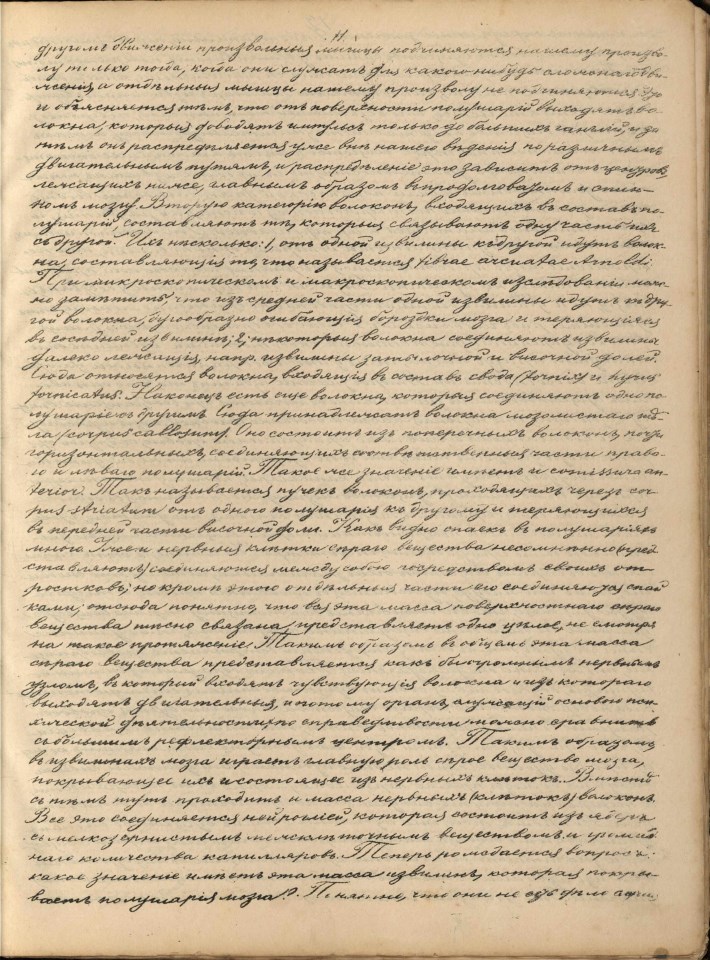 11.
другомъ движеніи произвольныя мышцы подчиняются нашему произво-
лу только тогда, когда они служатъ для какого нибудь сложнаго дви-
женія, а отдѣльныя мышцы нашему произволу не подчиняются. Это
и объясняется тѣмъ, что отъ поверхности полушарій выходятъ во-
локна, которыя доводятъ импульс только до большихъ ганглій, а за-
тѣмъ онъ распредѣляется уже внѣ нашего вѣденія по различнымъ
двигательнымъ путямъ, и распредѣленіе это зависитъ отъ центровъ,
лежащихъ ниже, главнымъ образомъ въ продолговатомъ и спин-
номъ мозгу. Вторую категорію волоконъ, входящихъ въ составъ по-
лушарій, составляютъ тѣ, которыя связываютъ одну часть ихъ
съ другой. Ихъ нѣсколько: 1, отъ одной извилины къ другой идутъ волок-
на, составляющія то, что называется fibrae arcuatae Arnoldi.
При микроскопическомъ и макроскопическомъ изслѣдованіи мож-
но замѣтить, что изъ средней части одной извилины идутъ къ дру-
гой волокна, дугообразно огибающія бороздки мозга и теряющіяся
въ сосѣдней извилинѣ; 2, нѣкоторыя волокна соединяютъ извилины
далеко лежащія, напр. извилины затылочной и височной долей.
Сюда относятся волокна, входящія въ составъ свода (fornix) и hyrus
fornicatus. Наконецъ есть еще волокна, которая соединяютъ одно по-
лушаріе съ другимъ. Сюда принадлежатъ волокна мозолистаго тѣ-
ла (corpus callosum). Оно состоитъ изъ поперечныхъ волоконъ, почти
горизонтальныхъ, соединяющихъ соотвѣтственныя части право-
го и лѣваго полушарій. Такое же значеніе имѣетъ и comissura an-
terior. Такъ называется пучекъ волоконъ, проходящихъ черезъ cor-
pus striatum отъ одного полушарія къ другому и теряющихся
въ передней части височной доли. Какъ видно спаекъ въ полушаріяхъ
много. Хотя и нервныя клѣтки сѣраго вещества несомнѣнно (пред
ставляютъ) соединяются между собою посредствомъ своихъ от-
ростковъ, но кромѣ этого отдѣльныя части его соединяются спай
ками; отсюда понятно, что вся эта масса поверхностнаго сѣраго
вещества тѣсно связана, представляетъ одно цѣлое, не смотря
на такое протяженіе. Такимъ образомъ въ общемъ эта масса
сѣраго вещества представляется какъ бы огромнымъ нервнымъ
узломъ, въ который входятъ чувствующія волокна и изъ котораго
выходятъ двигательныя, и потому органъ, служащій основою пси-
хической дѣятельности, по справедливости можно сравнить
съ большимъ рефлекторнымъ центромъ. Такимъ образомъ
въ извилинахъ мозга играетъ главную роль сѣрое вещество мозга,
покрывающее ихъ и состоящее изъ нервныхъ клѣтокъ. Вмѣстѣ
съ тѣмъ тутъ проходитъ и масса нервныхъ (клѣтокъ) волоконъ.
Все это соединяется нейрогліей, которая состоитъ изъ ядеръ
съ мелкозернистымъ межклѣточнымъ веществомъ, и громад-
наго количества капилляровъ. Теперь рождается вопросъ:
какое значеніе имѣетъ эта масса извилинъ, которая покры-
ваетъ полушарія мозга? Понятно, что они не